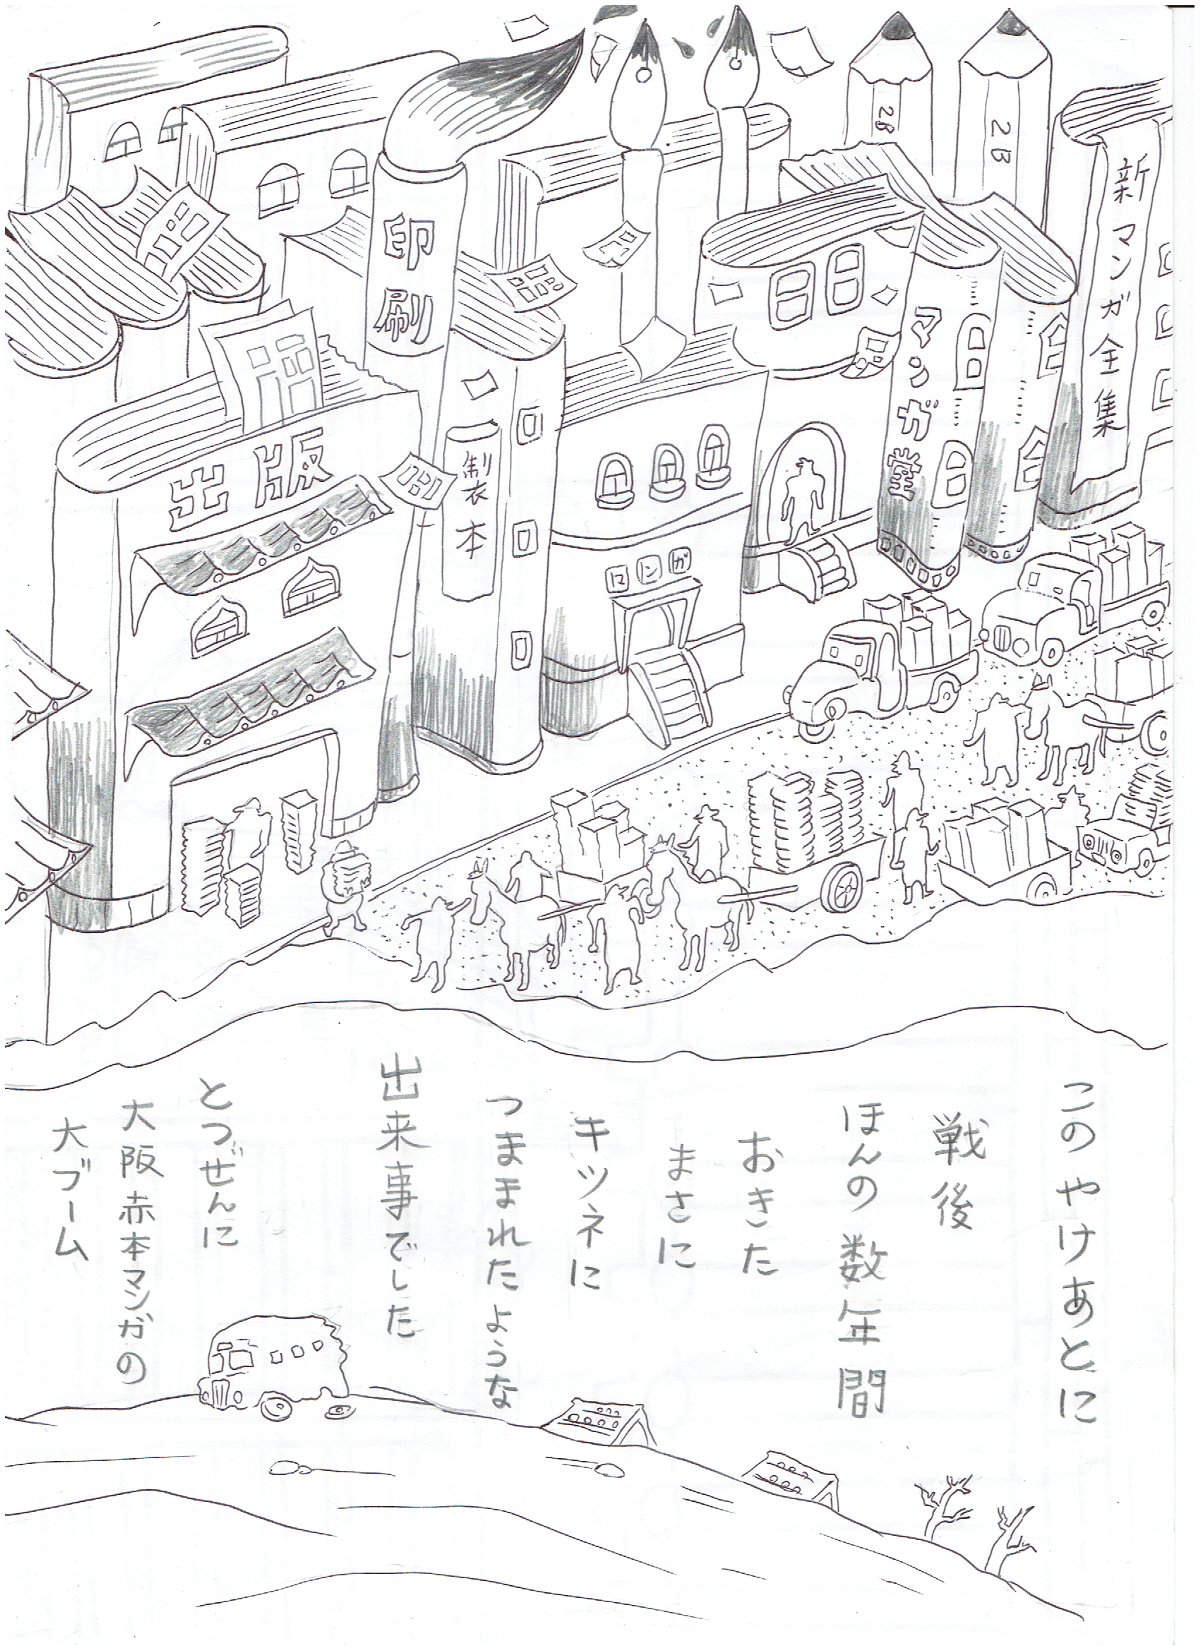 2B
2B
新マンガ全集
印刷
マンガ堂
出版
製本
マンガ
このやけあとに
戦後
ほんの数年間
おきた
まさに
キツネに
つままれたような
出来事でした
とつぜんに
大阪赤本マンガの
大ブーム